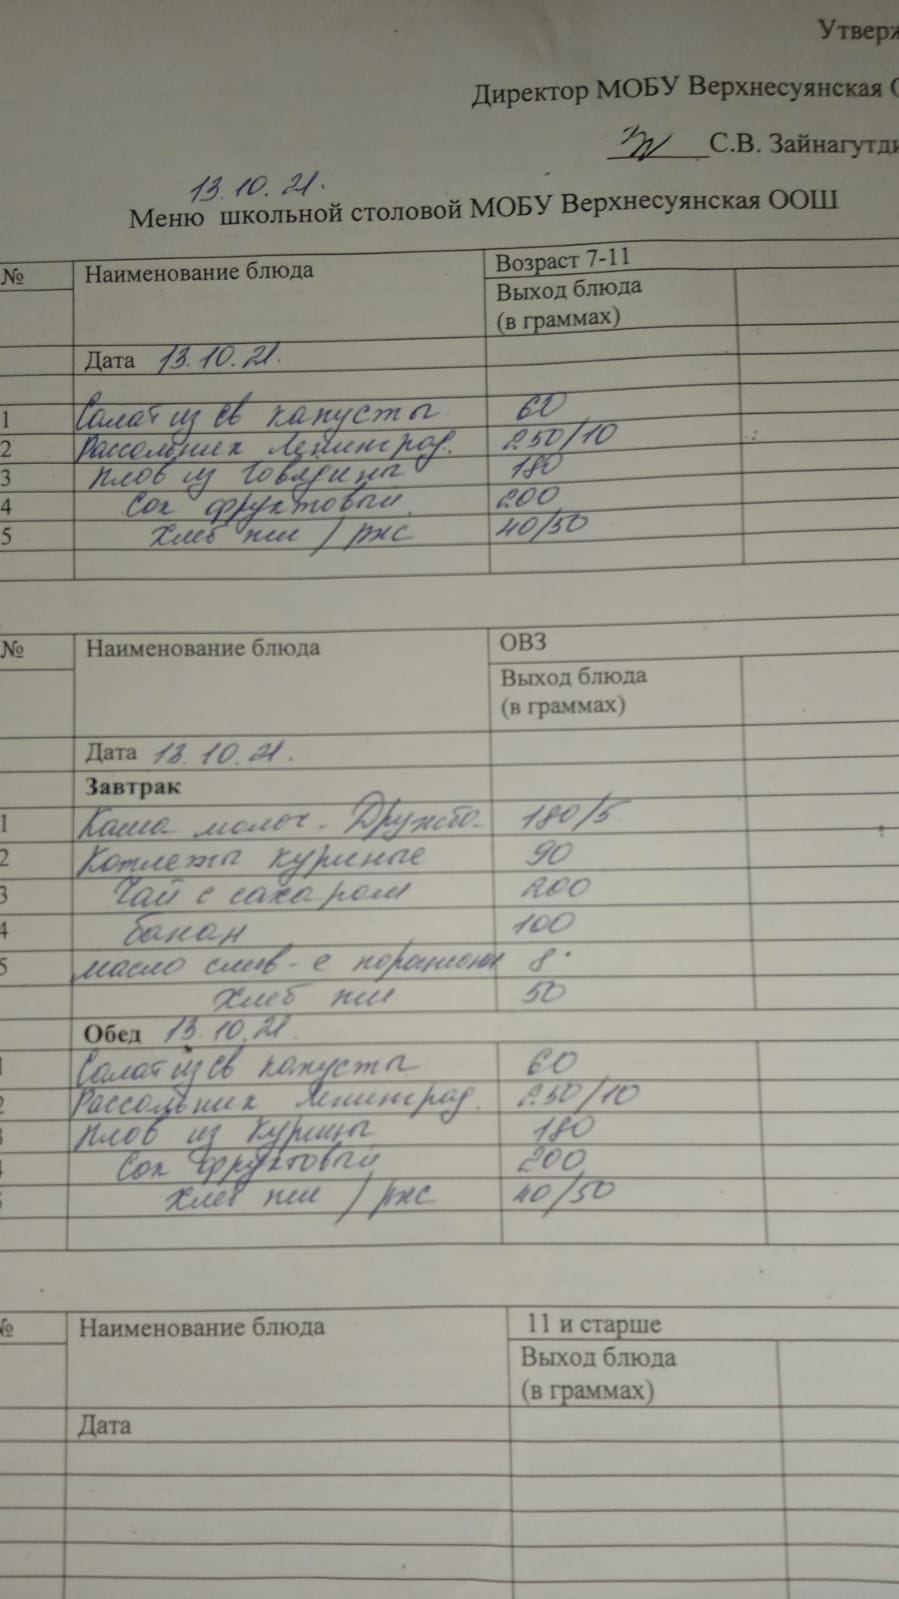 Утверж
Директор МОБУ Верхнесуянская О
С.В. Зайнагутди
13.10.21.
Меню школьной столовой МОБУ Верхнесуянская ООШ
№ Наименование блюда Возраст 7-11
Выход блюда
(в граммах)
Дата 13.10.21.
1 Салат из св капусты 60
2 Рассольник Ленинград. 250/10
3 Плов из говядины 180
4 Сок фруктовый 200
5 Хлеб пш / рж 40/50
№ Наименование блюда ОВЗ
Выход блюда
(в граммах)
Дата 13.10.21.
Завтрак
1 Каша молоч. Дружба 180/5
2 Котлеты куриные 90
3 Чай с сахаром 200
4 банан 100
5 масло слив-е порционн 8
Хлеб пш 50
Обед 13.10.21.
Салат из св капусты 60
2 Рассольник Ленинград. 250/10
Плов из курицы 180
Сок фруктовый 200
Хлеб пш / рж 40/50
№ Наименование блюда 11 и старше
Выход блюда
(в граммах)
Дата